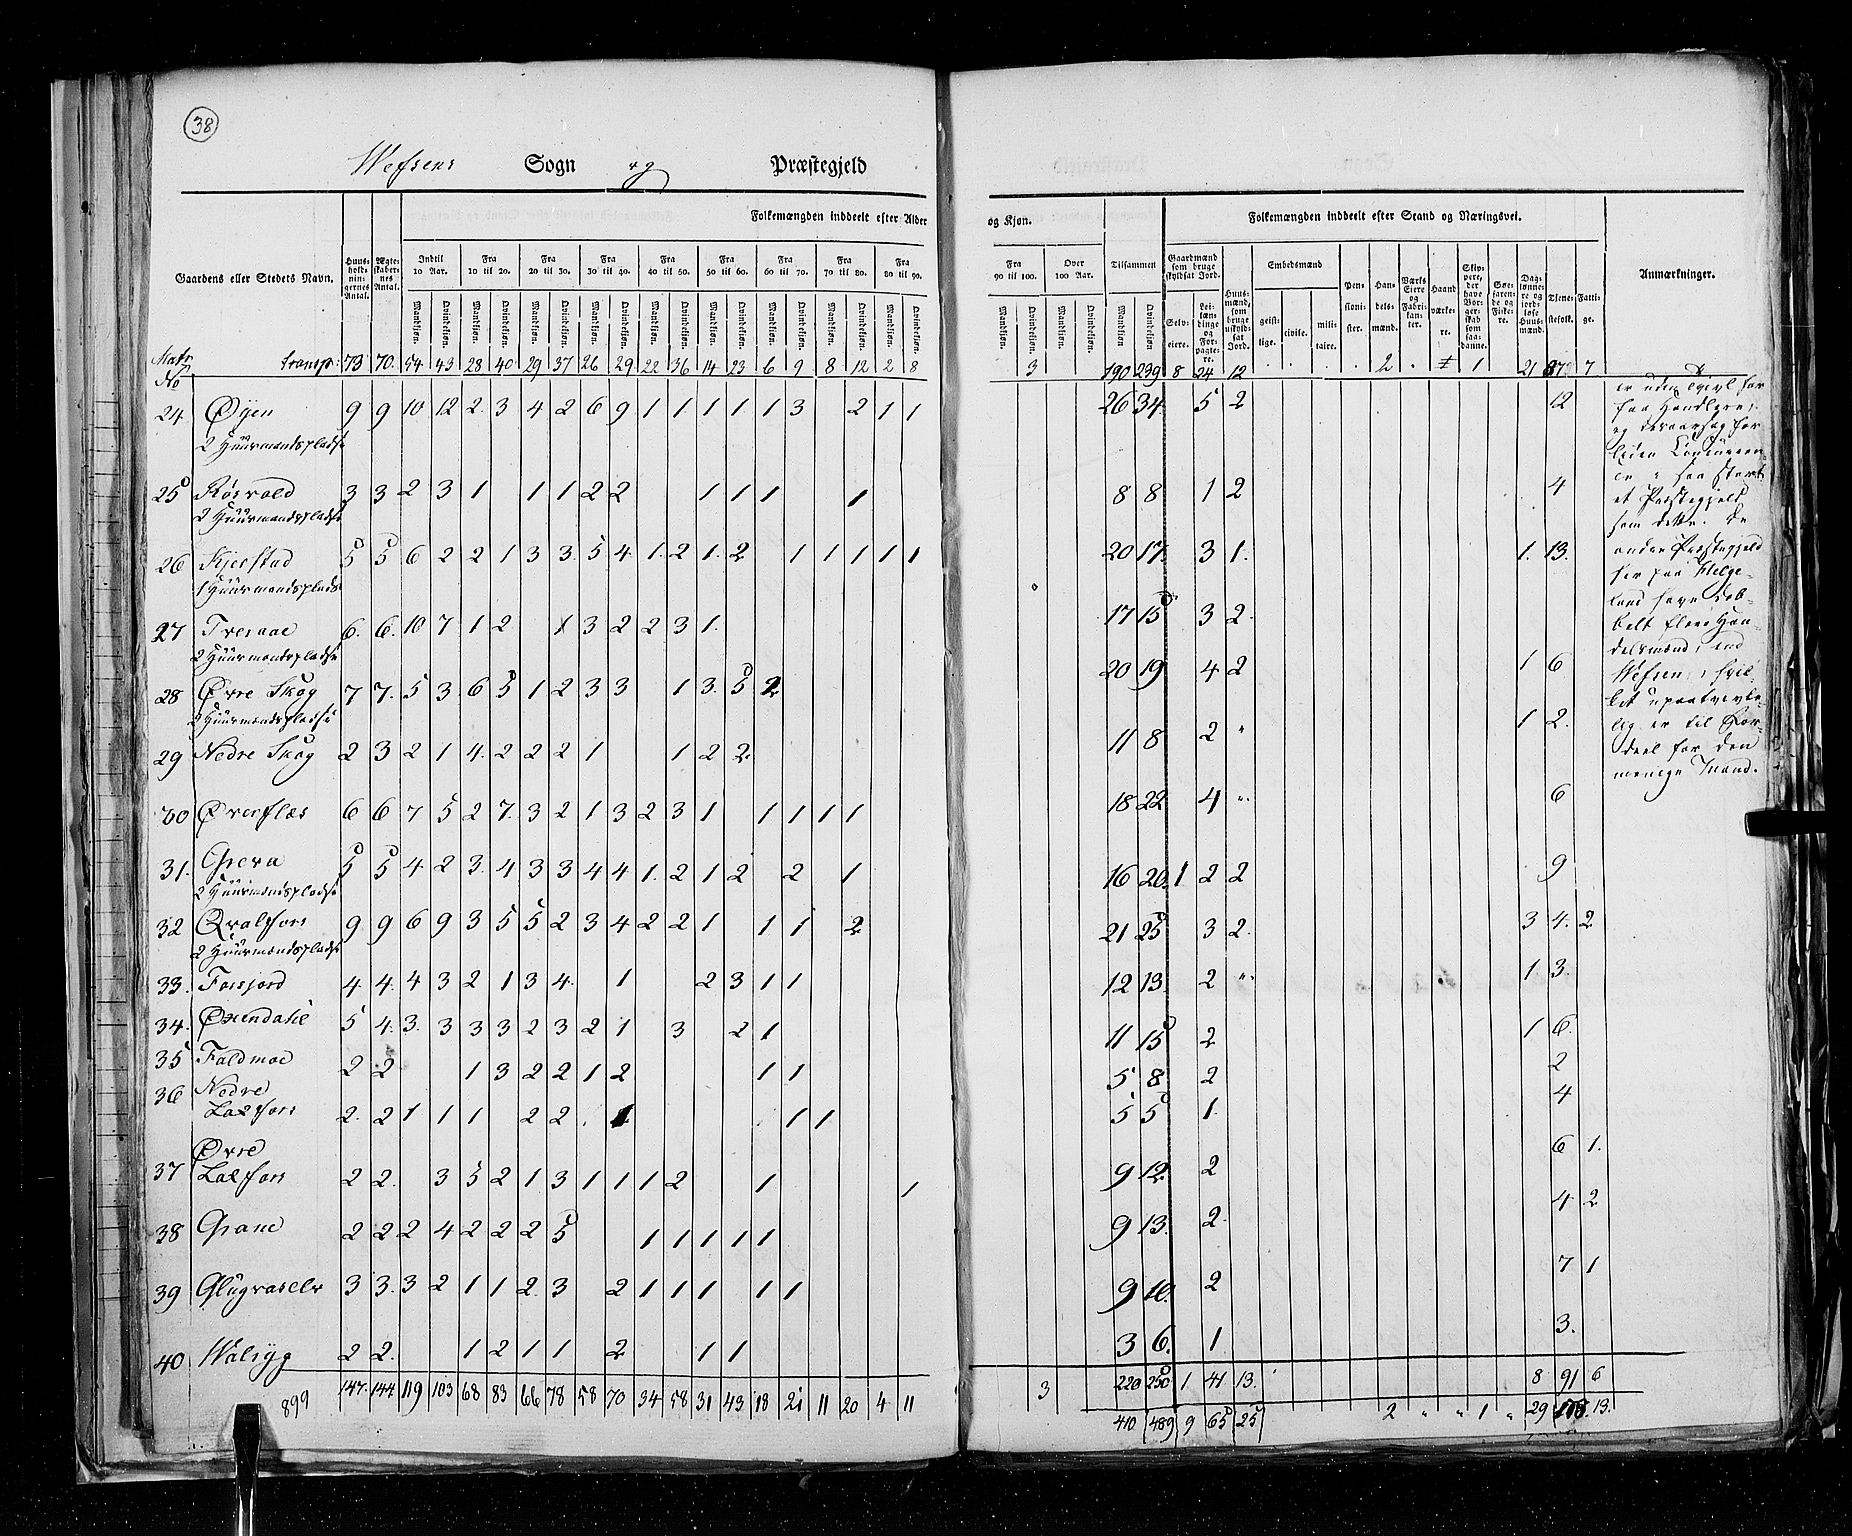 38
Wefsens Sogn og Præstegjeld
Folkemængden inddeelt efter Alder
og Kjøn.
Folkemængden inddeelt efter Stand og Næringsvei.
Gaardens eller Stedets Navn.
Huusholdningernes Antal.
Ægteskabernes Antal.
Indtil 10 Aar.
Fra 10 til 20.
Fra 20 til 30.
Fra 30 til 40.
Fra 40 til 50.
Fra 50 til 60.
Fra 60 til 70.
Fra 70 til 80.
Fra 80 til 90.
Fra 90 til 100.
Over 100 Aar.
Tilsammen
Mandkjøn. Qvindekjøn.
Gaardmænd som bruge skyldsat Jord.
Selveiere.
Leilændinge og Forpagtere.
Huusmænd, som bruge uskyldsat Jord.
Embedsmænd
geistlige. civile. militaire.
Pensionister.
Handelsmænd.
Værks Eiere og Fabrikanter.
Haandværkere.
Skippere, der have Borgerskab som saadanne.
Søefarende og Fiskere.
Daglønnere og jordløse Huusmænd.
Tjenestefolk.
Fattige.
Anmærkninger.
Matr No transp: 73 70. 54 43 28 40 29 37 26 29 22 36 14 23 6 9 8 12 2 8 3 190 239 8 24 12 2 1 21 7
24 Øyen 9 9 10 12 2 3 4 2 6 9 1 1 1 1 1 3 2 1 1 26 34 5 2 12
2 Huusmandspladse
25 Røsvold 3 3 2 3 1 1 1 2 2 1 1 1 1 8 8 1 2 4
2 Huusmandspladse
26 Kjerstad 5 5 6 2 2 1 3 3 5 4 1 2 1 2 1 1 1 1 1 20 17 3 1 1 13
1 Huusmandsplads
27 6 6 10 7 1 2 1 3 2 2 3 1 17 15 3 2
2 Huusmandspladse
28 Øvre Skog 7 7 5 3 6 5 1 2 3 3 1 3 5 2 20 19 4 2 1 6
2 Huusmandspladse
29 Nedre Skog 2 3 2 1 4 2 2 2 1 1 2 2 11 8 2 " 1 2
30 6 6 7 5 2 7 3 2 1 3 2 3 1 1 1 1 1 18 22 4 " 6
31 5 5 4 2 3 4 3 3 4 4 1 2 1 2 2 1 16 20 1 2 2 9
2 Huusmandspladse
32 Qvalfors 9 9 6 9 3 5 5 2 3 4 2 2 1 1 1 2 21 25 3 2 3 4 2
2 Huusmandspladse
33 Forsjord 4 4 4 3 2 1 3 4 1 2 3 1 1 12 13 2 " 1 3
34 5 4 3 3 3 3 2 3 2 1 3 2 1 11 15 2 1 6
35 Faldmoe 2 2 1 3 2 2 1 2 1 1 5 8 2 2
36 Nedre
Laxfors 2 2 1 1 1 2 2 1 1 1 5 5 1 4
37 Øvre
Laxfors 2 2 3 5 2 1 3 1 1 1 2 1 1 9 12 2 6 1
38 Grane 2 2 2 4 2 2 2 5 1 1 1 1 1 9 13 2 4 2
39 3 3 3 2 1 1 2 3 2 1 1 1 1 1 9 10 2 7 1
40 2 2 1 2 1 1 2 1 1 3 6 1 3
220 250 1 41 13 8 91 6
899 147 144 119 103 68 83 66 78 58 70 34 58 31 43 18 21 11 20 4 11 3 410 489 9 65 25 2 " " 1 " 29 13
er uden Tvivl for
faa Handlere,
og
som dette. De
andre Præstegjeld
her paa Helge-
land have dob-
belt flere Han-
delsmænd, end
Wefsen, hvil-
ket upaatvivle-
lig er til For-
deel for den
menige Mand.